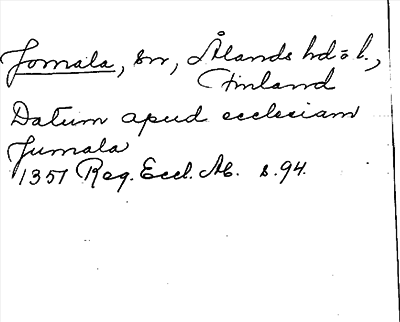 Jomala, sn, Ålands hd o l.,
Finland
Datum apud ecclesiam
Jumala
1357 Reg. Eccl. Ab. s. 94.